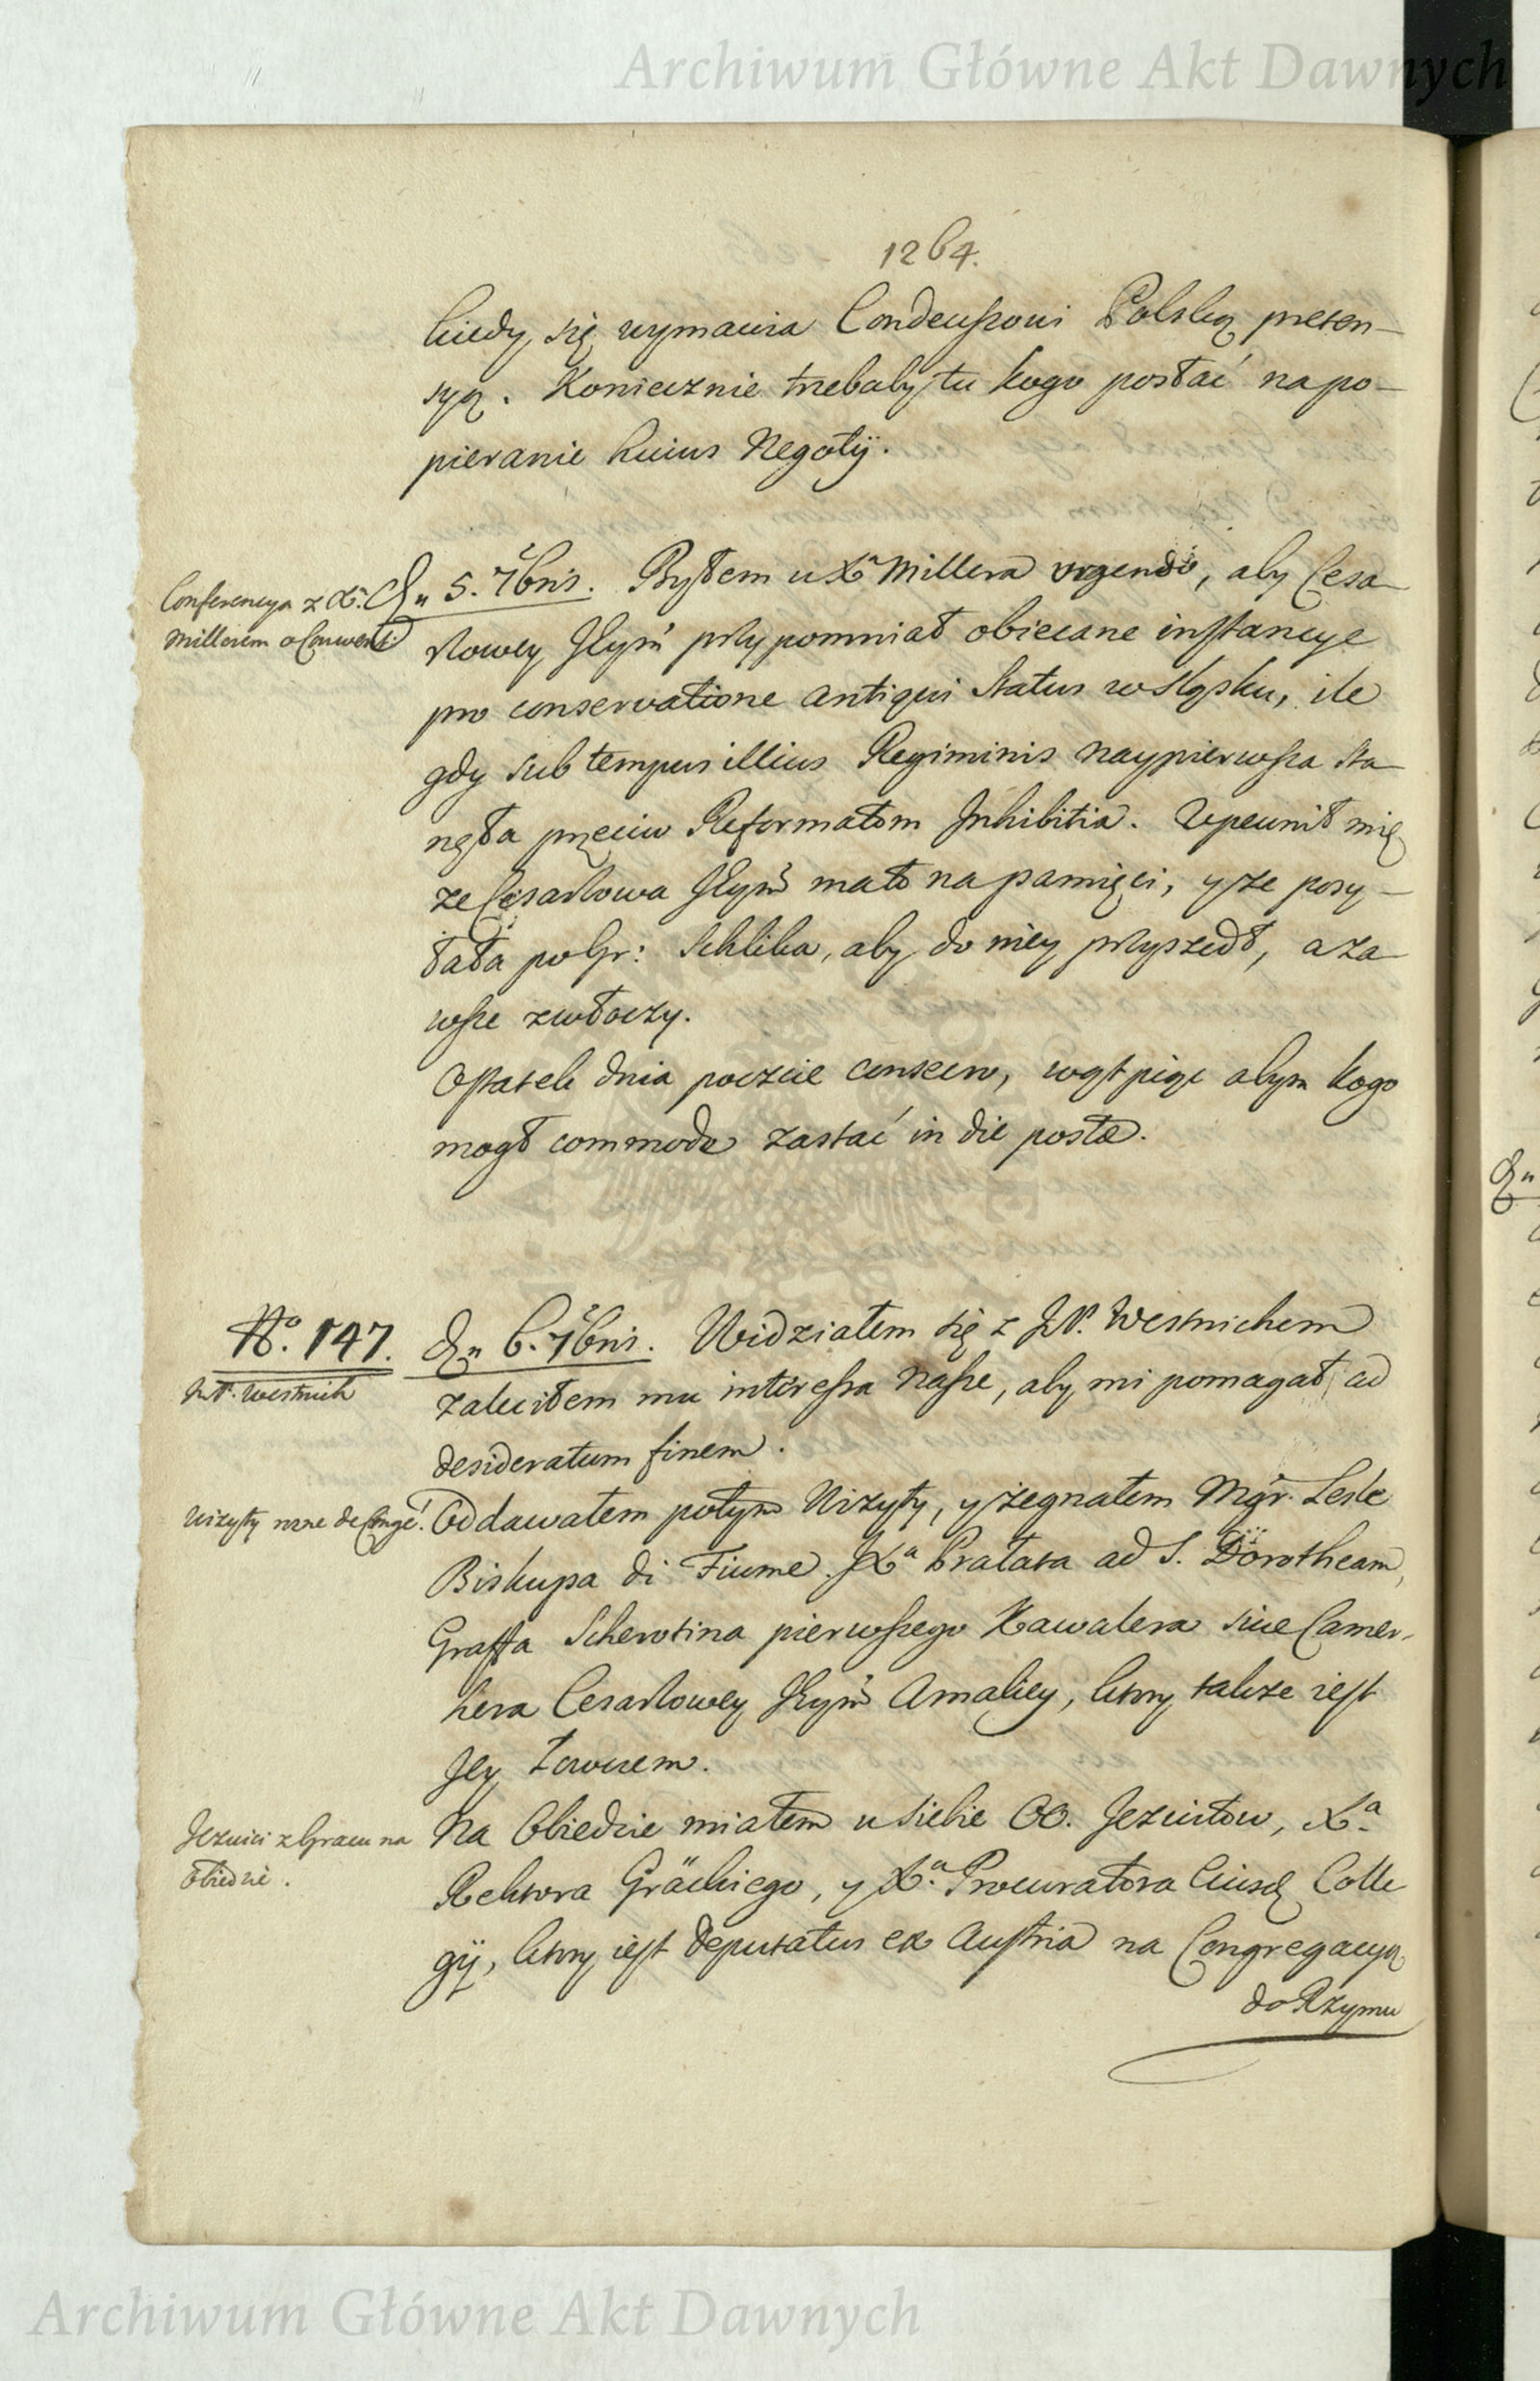 Archiwum Główne Akt Dawnych
1264.
kiedy się wymawia Condeuszowi Polską preten-
syą. Koniecznie trzebaby tu kogo posłać na po-
pieranie huius Negotÿ.
Conferencya z X.
Millerem o Convent:
Dn 5. 7bris. Byłem u Xa Millera urgendo, aby Cesa-
rzowey JKym przypomniał obiecane instancye
pro conservatione antiqui status w Sląsku, ile
gdy sub tempus illius Regiminis naypierwsza sta-
nęła przeciw Reformatom Inhibitia. Upewnił mię
ze Cesarzowa JKym mato na pamięci, y ze posy-
łała po Gr: Schlika, aby do niey przyszedł, a za-
wsze zwłoczy.
Ostatek dnia poczcie consecro, wątpiąc abym kogo
mogł commode zastać in die postæ.
No. 147.
Dn 6. 7bris. Widziałem się z JP. Westnichem
JP. Westnich
zaleciłem mu interessa nasze, aby mi pomagał ad
desideratum finem.
Wizyty moje de Congé.
Oddawałem potym Wizyty, y żegnałem Mgr. Lesle
Biskupa di Fiume. JXa Prałata ad S. Dorotheam,
Graffa Scherotina pierwszego Kawalera sive Camer-
hera Cesarzowey JKym Amaliey, ktory takze iest
Jey Łowczem.
Jezuici z Gracu na
obiedzie.
Na Obiedzie miałem u siebie OO. Jezuitow, Xa
Rektora Gräckiego, y Xa Procuratora Eiusd Colle-
gÿ, ktory iest deputatus ex Austria na Congregacyą
do Rzymu
Archiwum Główne Akt Dawnych